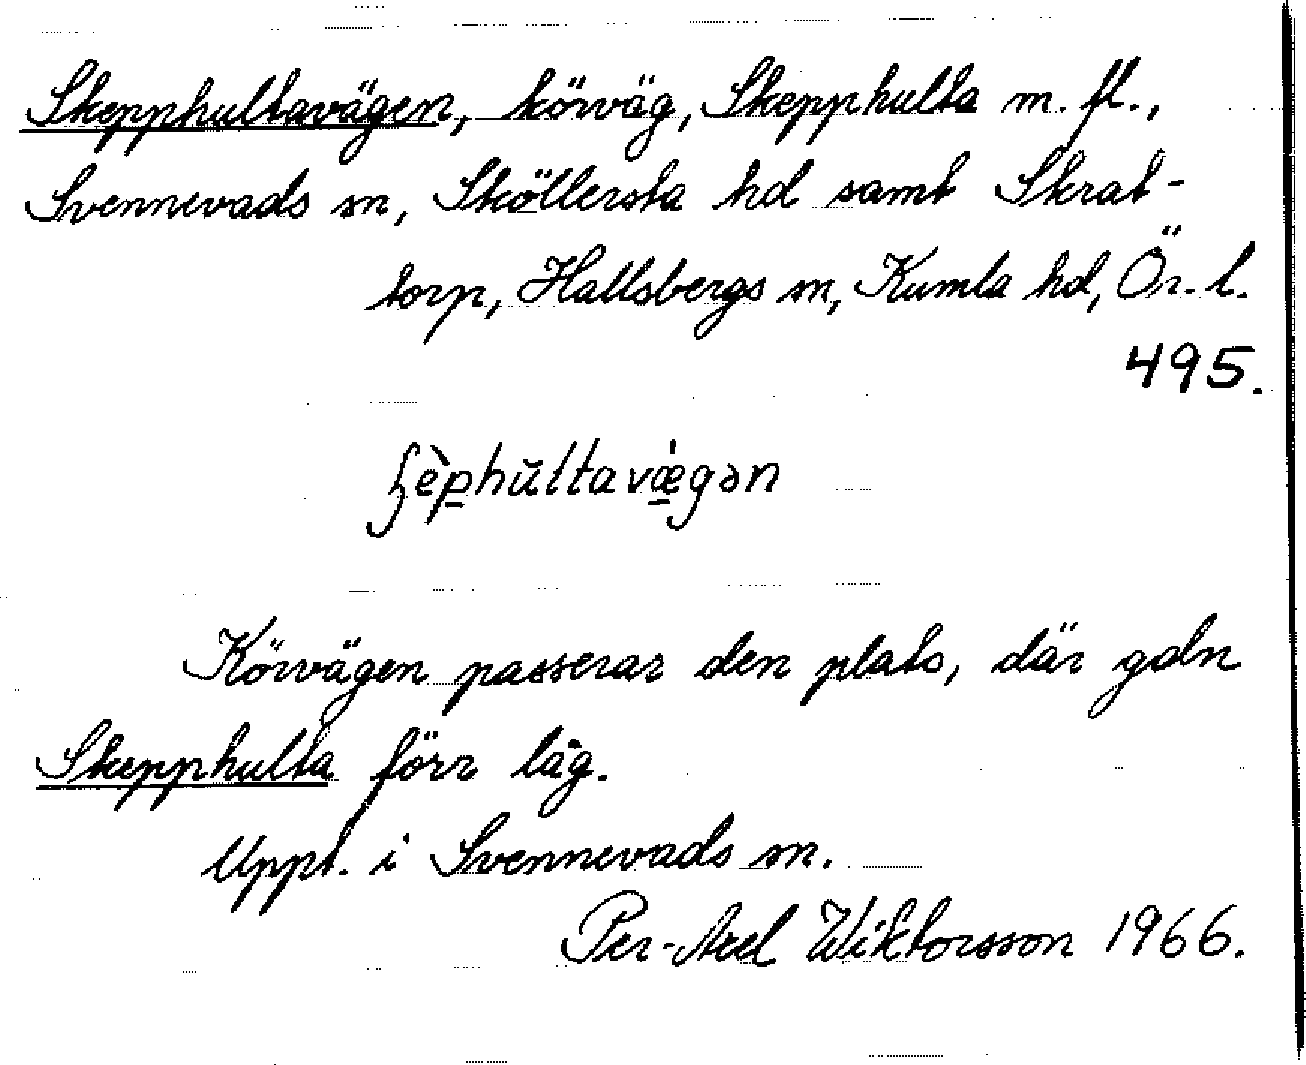 Skepphultavägen, körväg, Skepphulta m. fl.,
Svennevads sn, Sköllersta hd samt Skrat-
torp, Hallsbergs sn, Kumla hd, Ör. l.
495.
ʃèphŭltavǽgən
Körvägen passerar den plats, där gdn
Skepphulta förr låg.
Uppt. i Svennevads sn.
Per-Axel Wiktorsson 1966.